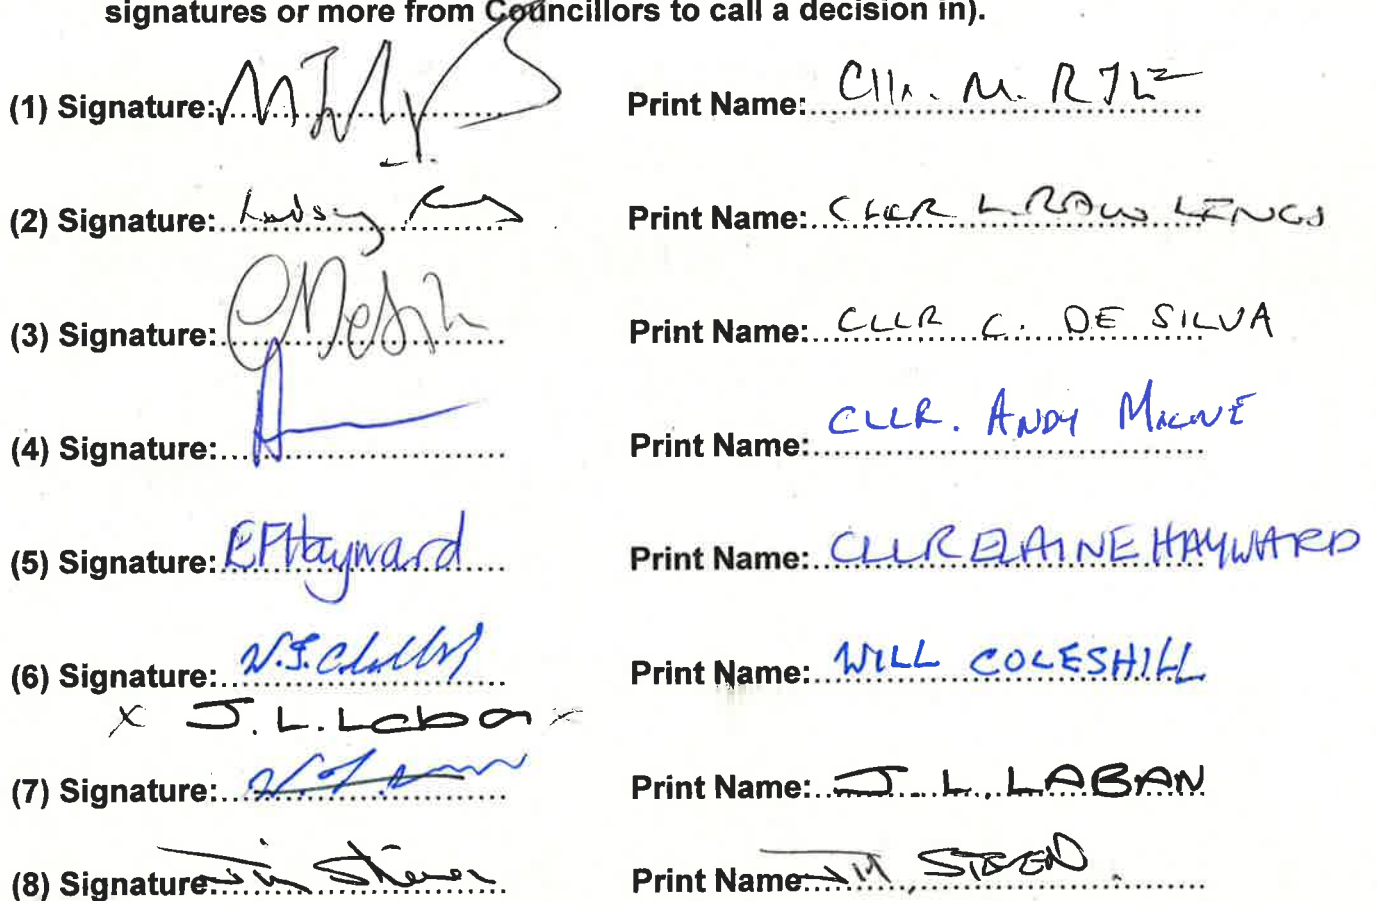 signatures or more from Councillors to call a decision in).
(1) Signature: Print Name: Cllr. M.
(2) Signature: Lindsay Print Name: CLLR L. RAWLINGS
(3) Signature: Print Name: CLLR C. DE SILVA
(4) Signature: Print Name: CLLR. ANDY MILNE
(5) Signature: EFHayward Print Name: CLLR ELAINE HAYWARD
(6) Signature: Print Name: WILL COLESHILL
x J.L.Laban x
(7) Signature: Print Name: J.L. LABAN
(8) Signature: Jim Steven Print Name: JIM STEVEN